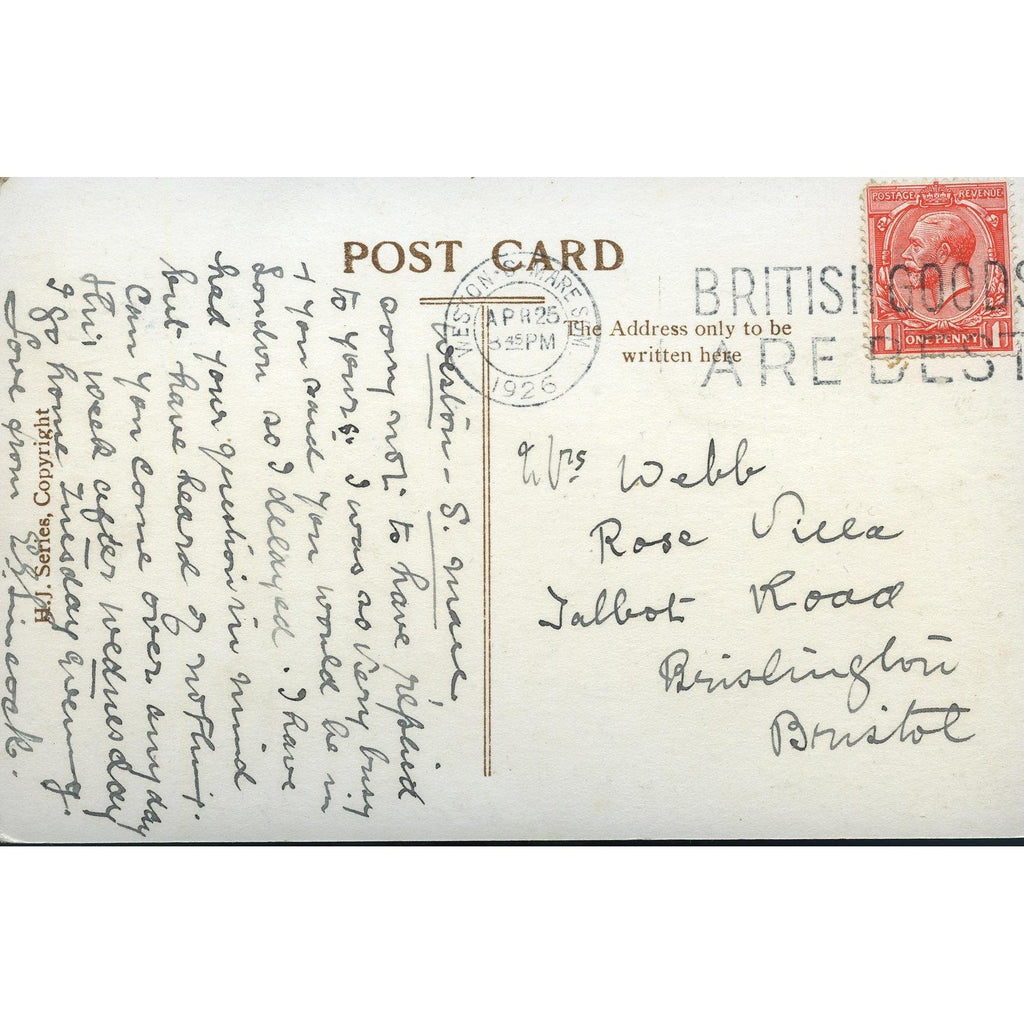 POST CARD
The Address only to be
written here
WESTON-S-MARE SOM
APR 25
3 45 PM
1926
BRITISH GOODS
ARE BEST
POSTAGE REVENUE
1 ONE PENNY 1
H.J. Series, Copyright
Weston-S. Mare,
sorry not to have replied
to yours. I was so very busy
& you said you would be in
London so I delayed. I have
had your question in mind
but have heard of nothing.
Can you come over any day
this week after Wednesday
I go home Tuesday evening.
Love from
Mrs Webb
Rose Villa
Talbot Road
Brislington
Bristol